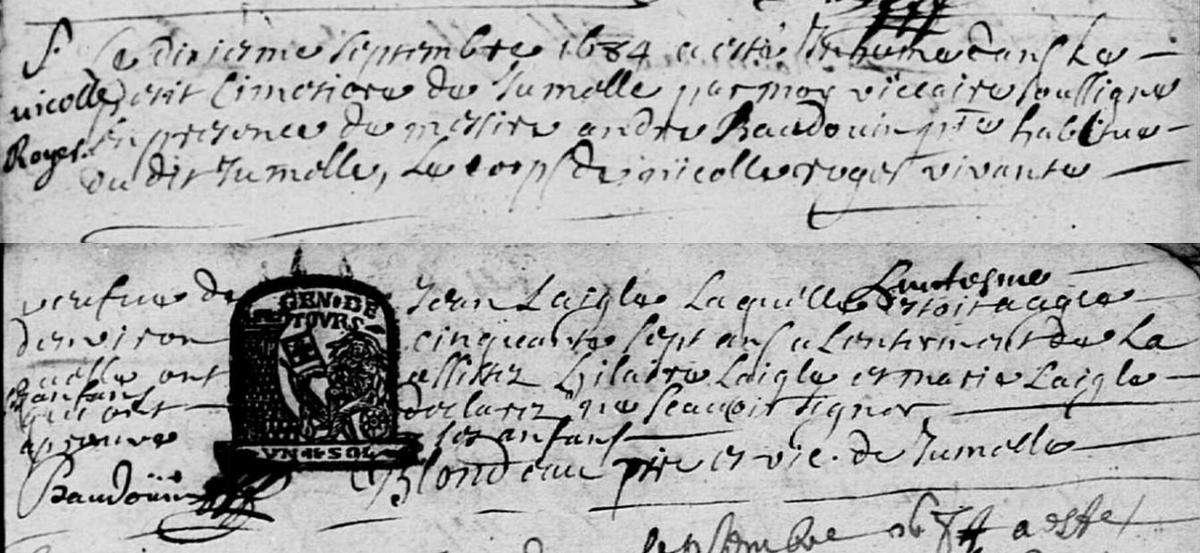 S. Le dixiesme septembre 1684 a esté Inhumé dans Le
nicolle petit Cimetiere de Jumelle par moy viccaire soussigné
Royer en presence de messire andré Baudouin ptre habitué
au dit Jumelle, Le corps de niicolle roger vivante
Luictiesme
verfue de Jean Laigle Laquelle estoit aagée
denviron cinquante sept ans a Lenterment de La
quelle ont assistez hilaire Laigle et marie Laigle
enfans
qui ont declarez ne scavoir signer
aprouvé ses enfans
Baudouin Blondeau ptre et vic. de Jumelle
GEN · DE
TOVRS
VN · SOL
septembre 1684 a esté